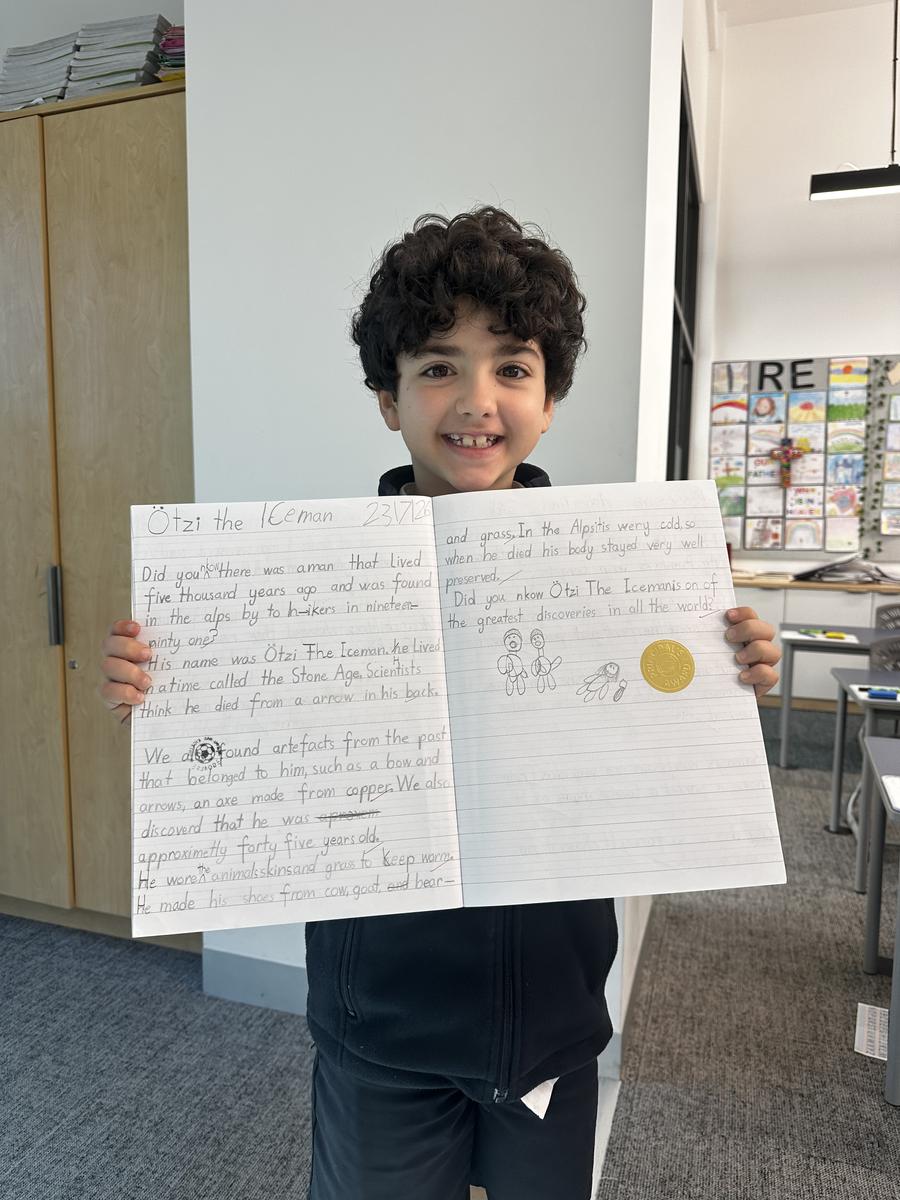 Ötzi the ICeman 23/7/26
Did you nkow there was a man that Lived
five thousand years ago and was found
in the alps by to h-ikers in nineteen-
ninty one?
His name was Ötzi The Iceman. he Lived
in a time called the Stone Age. Scientists
think he died from a arrow in his back.
We found artefacts from the past
that belonged to him, such as a bow and
arrows, an axe made from copper. We also
discoverd that he was aproxem
approximetly forty five years old.
He wore the animals skins and grass to keep warm.
He made his shoes from cow, goat, and bear-
and grass. In the Alps it is wery cold, so
when he died his body stayed very well
preserved.
Did you nkow Ötzi The Iceman is on of
the greatest discoveries in all the world?
PRINCIPAL'S AWARD
IRE
OUR FATHER